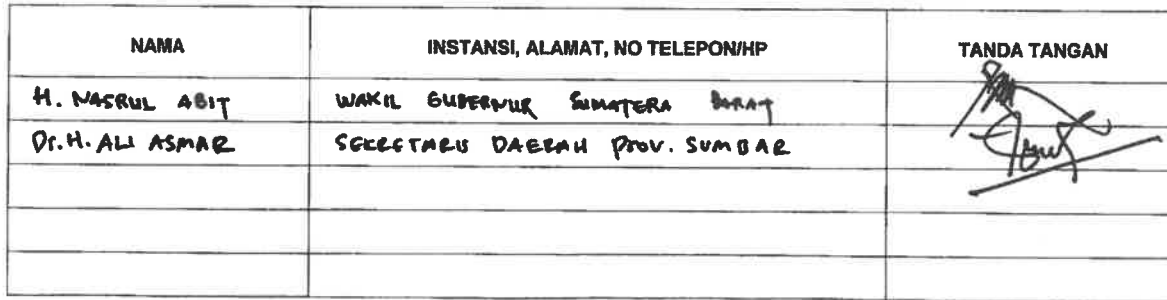 NAMA INSTANSI, ALAMAT, NO TELEPON/HP TANDA TANGAN
H. NASRUL ABIT WAKIL GUBERNUR SUMATERA BARAT
Dr. H. ALI ASMAR SEKRETARIS DAERAH Prov. SUMBAR